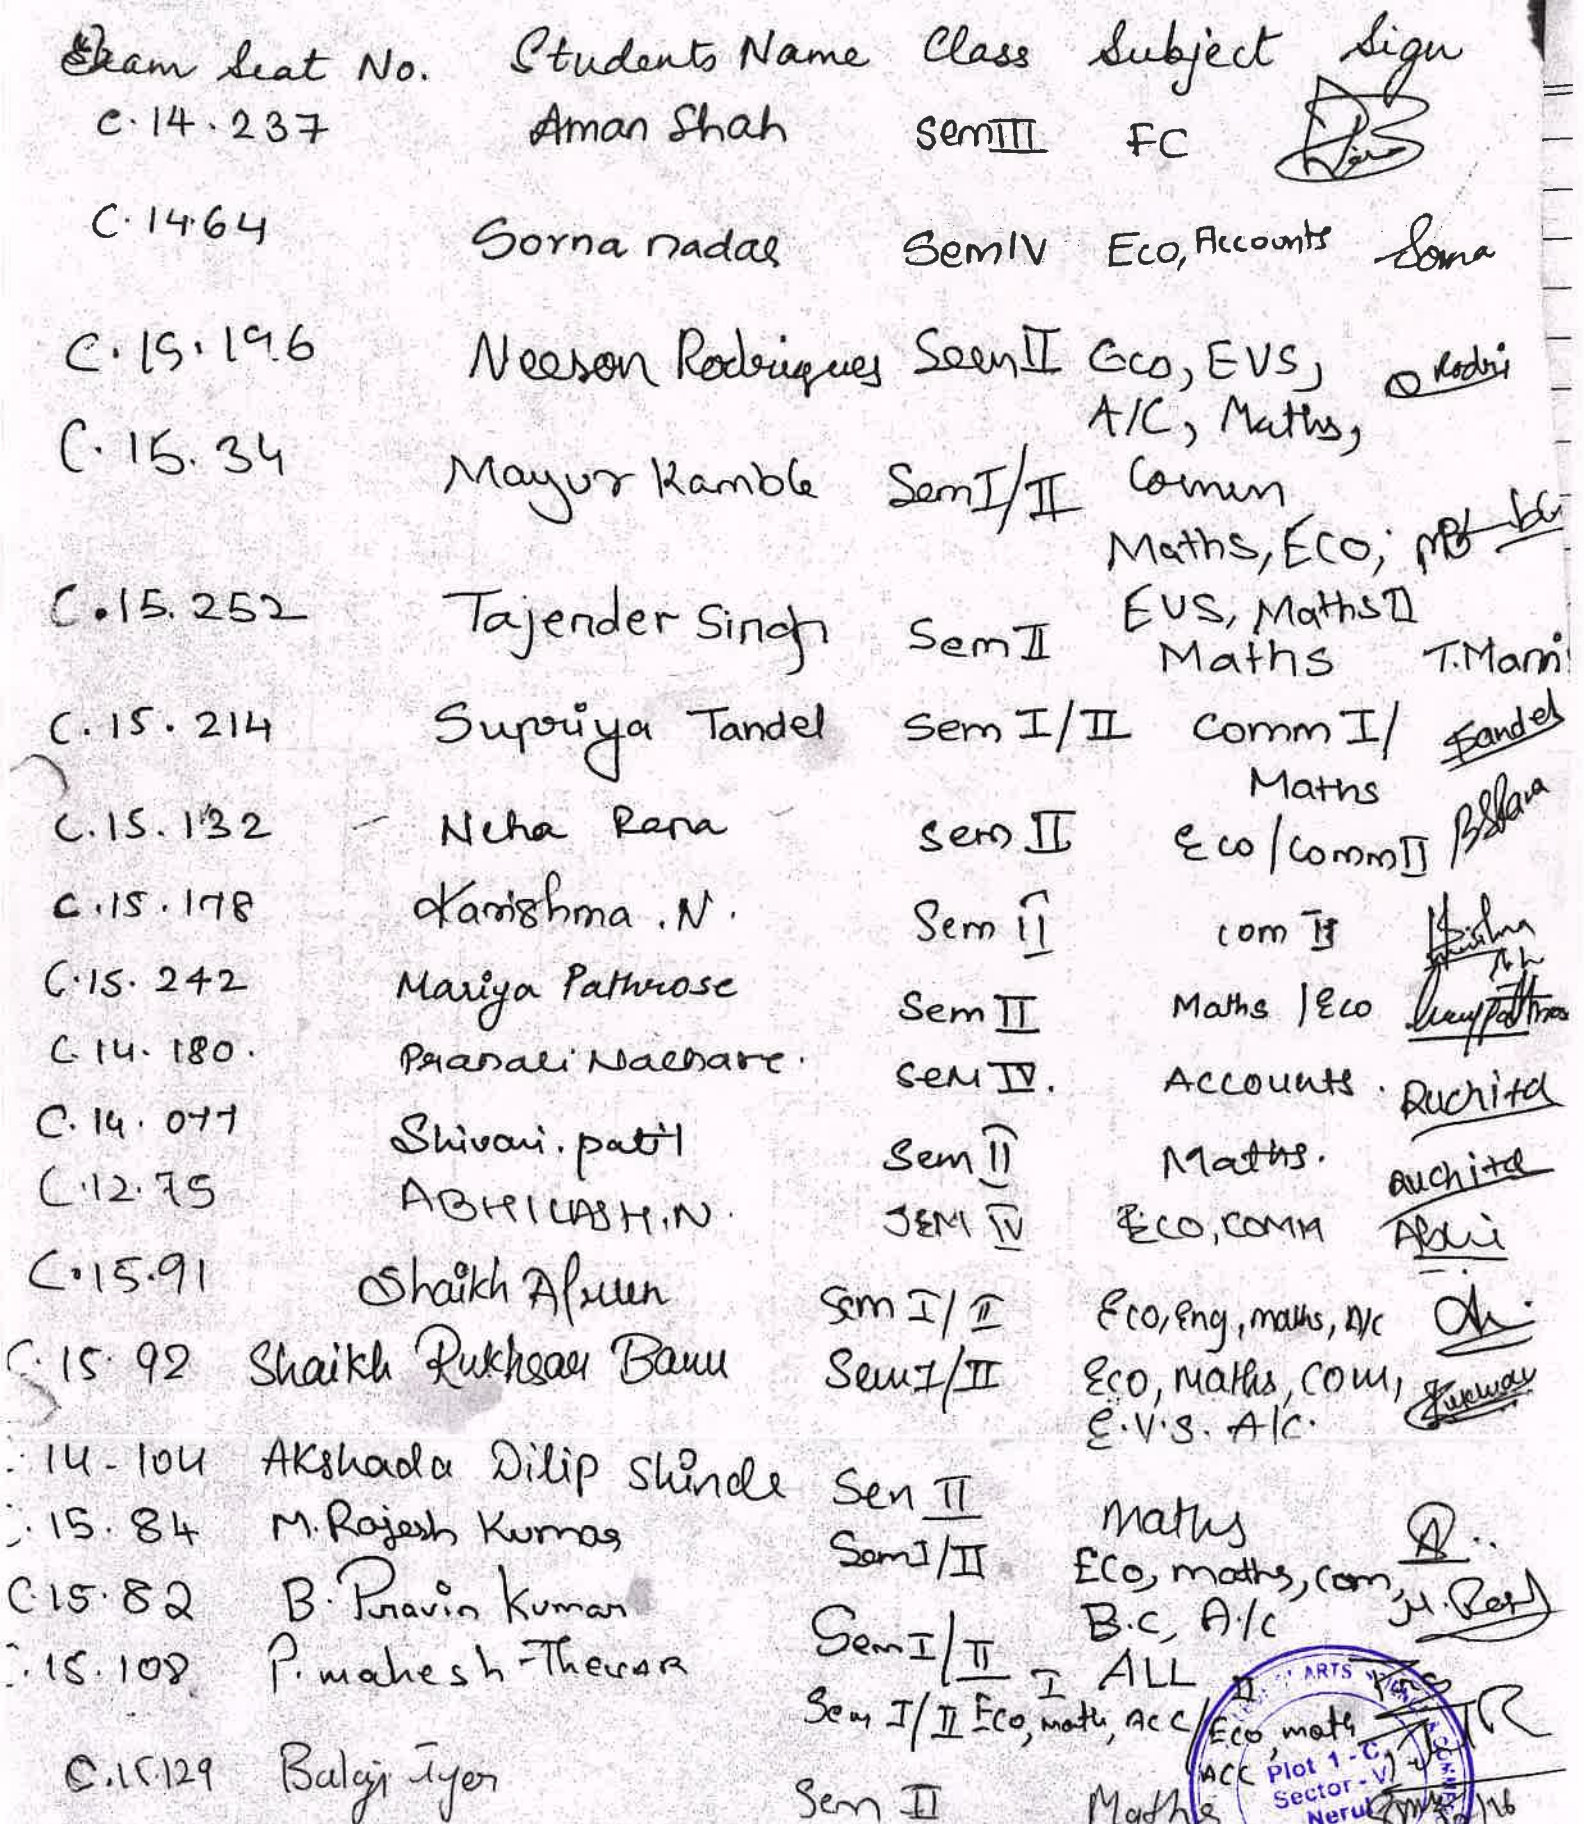 Exam Seat No. Students Name Class Subject Sign
C.14.237 Aman Shah Sem III FC
C.14.64 Sorna nadar Sem IV Eco, Accounts Sorna
C.15.196 Neeson Rodrigues Sem II Eco, EVS, Rodri
A/C, Maths,
Comm
C.15.34 Mayur Kamble Sem I/II
Maths, Eco,
EVS, Maths II
C.15.252 Tajender Singh Sem II Maths T.Mani
C.15.214 Supriya Tandel Sem I/II Comm I/ Tandel
Maths
C.15.132 Neha Rana Sem II Eco/Comm II BSRana
C.15.178 Karishma .N. Sem II com II
C.15.242 Mariya Pathrose Sem II Maths /Eco
C.14.180. Pranali Nalbare. Sem IV. Accounts. Ruchita
C.14.077 Shivani.patil Sem II Maths. Ruchita
C.12.75 ABHILASH.N. SEM IV ECO, COMM Abhi
C.15.91 Shaikh Afreen Sem I/II Eco, Eng, maths, A/c
C.15.92 Shaikh Rukhsar Banu Sem I/II Eco, Maths, Com,
E.V.S. A/C.
.14-104 Akshada Dilip Shinde Sem II Maths
.15.84 M.Rajesh Kumar Sem I/II Eco, maths, com,
B.C, A/c
C.15.82 B. Pravin Kumar Sem I/II ALL
.15.108 P.mahesh Thevar Sem I/II I Eco, math, ACC/ II Eco, math,
ACC
C.15.129 Balaji Iyer Sem II Maths
ARTS
Plot 1-C,
Sector-V,
Nerul